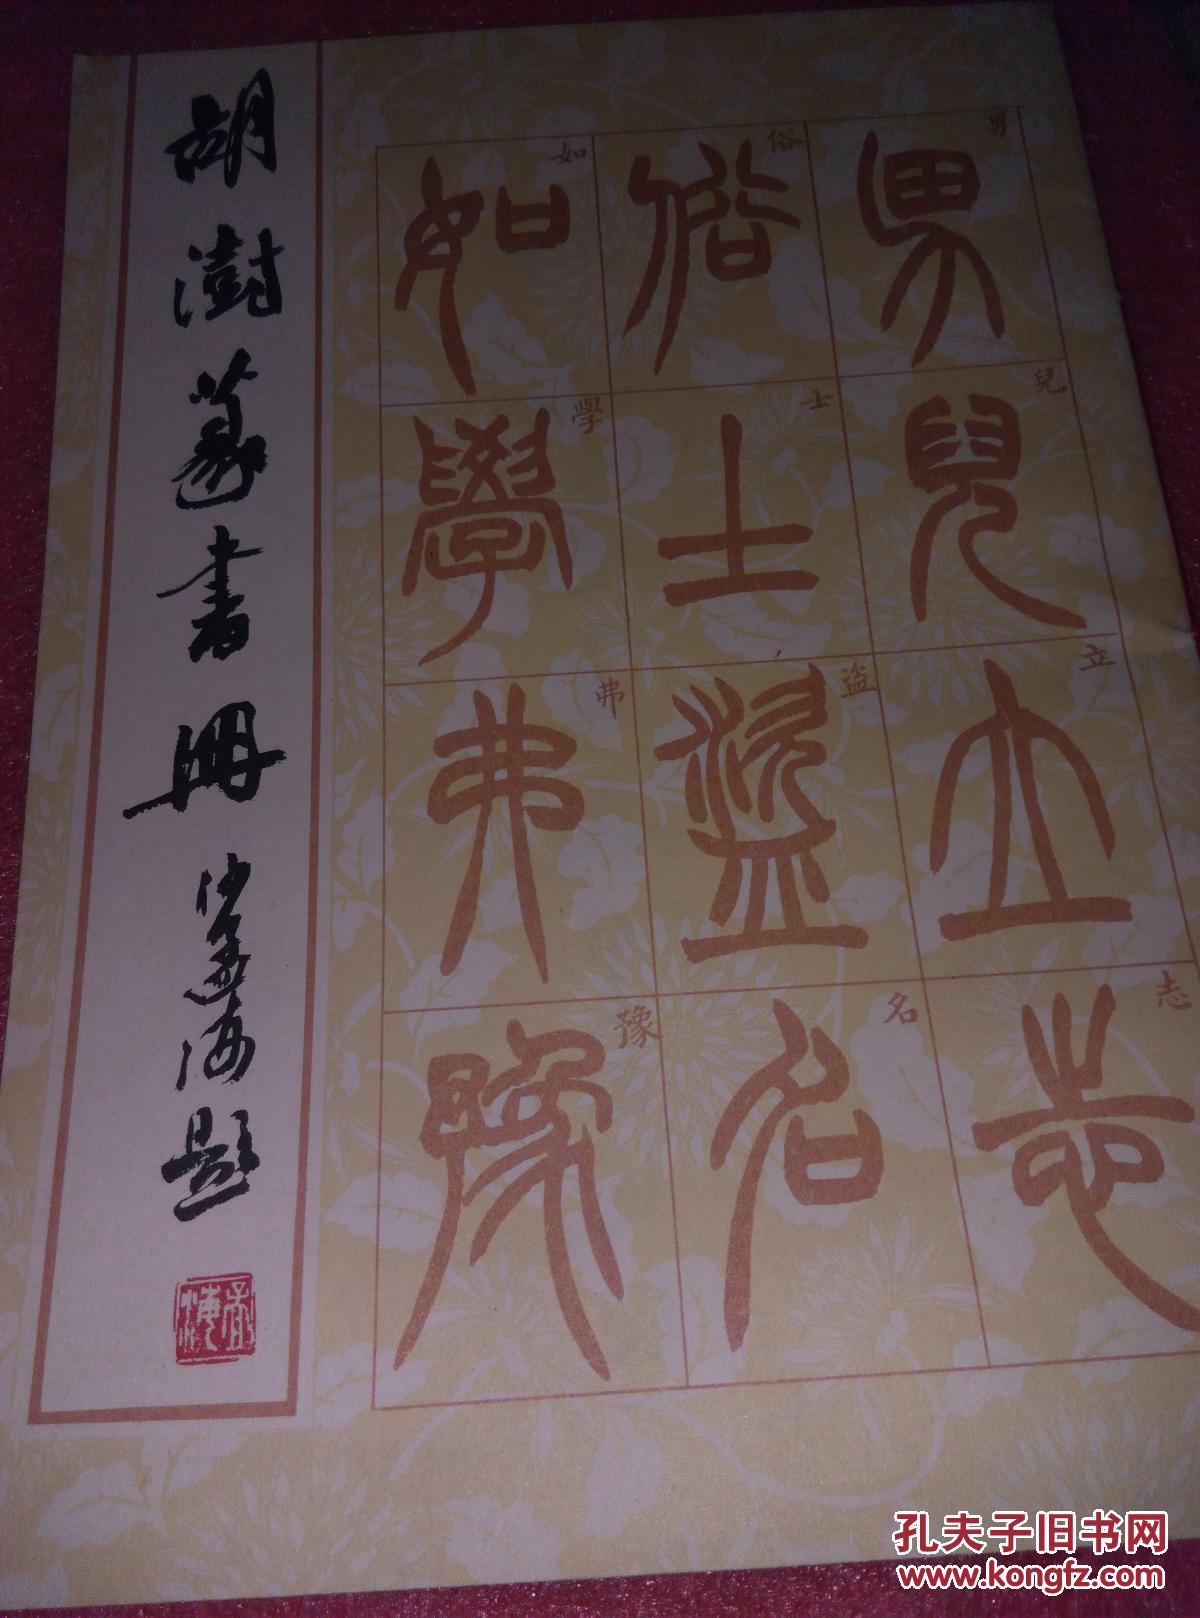 胡澍篆書冊 沙孟海題
男兒立志
俗士盜名
如學弗豫
男 兒 立 志
俗 士 盜 名
如 學 弗 豫
孔夫子旧书网
www.kongfz.com